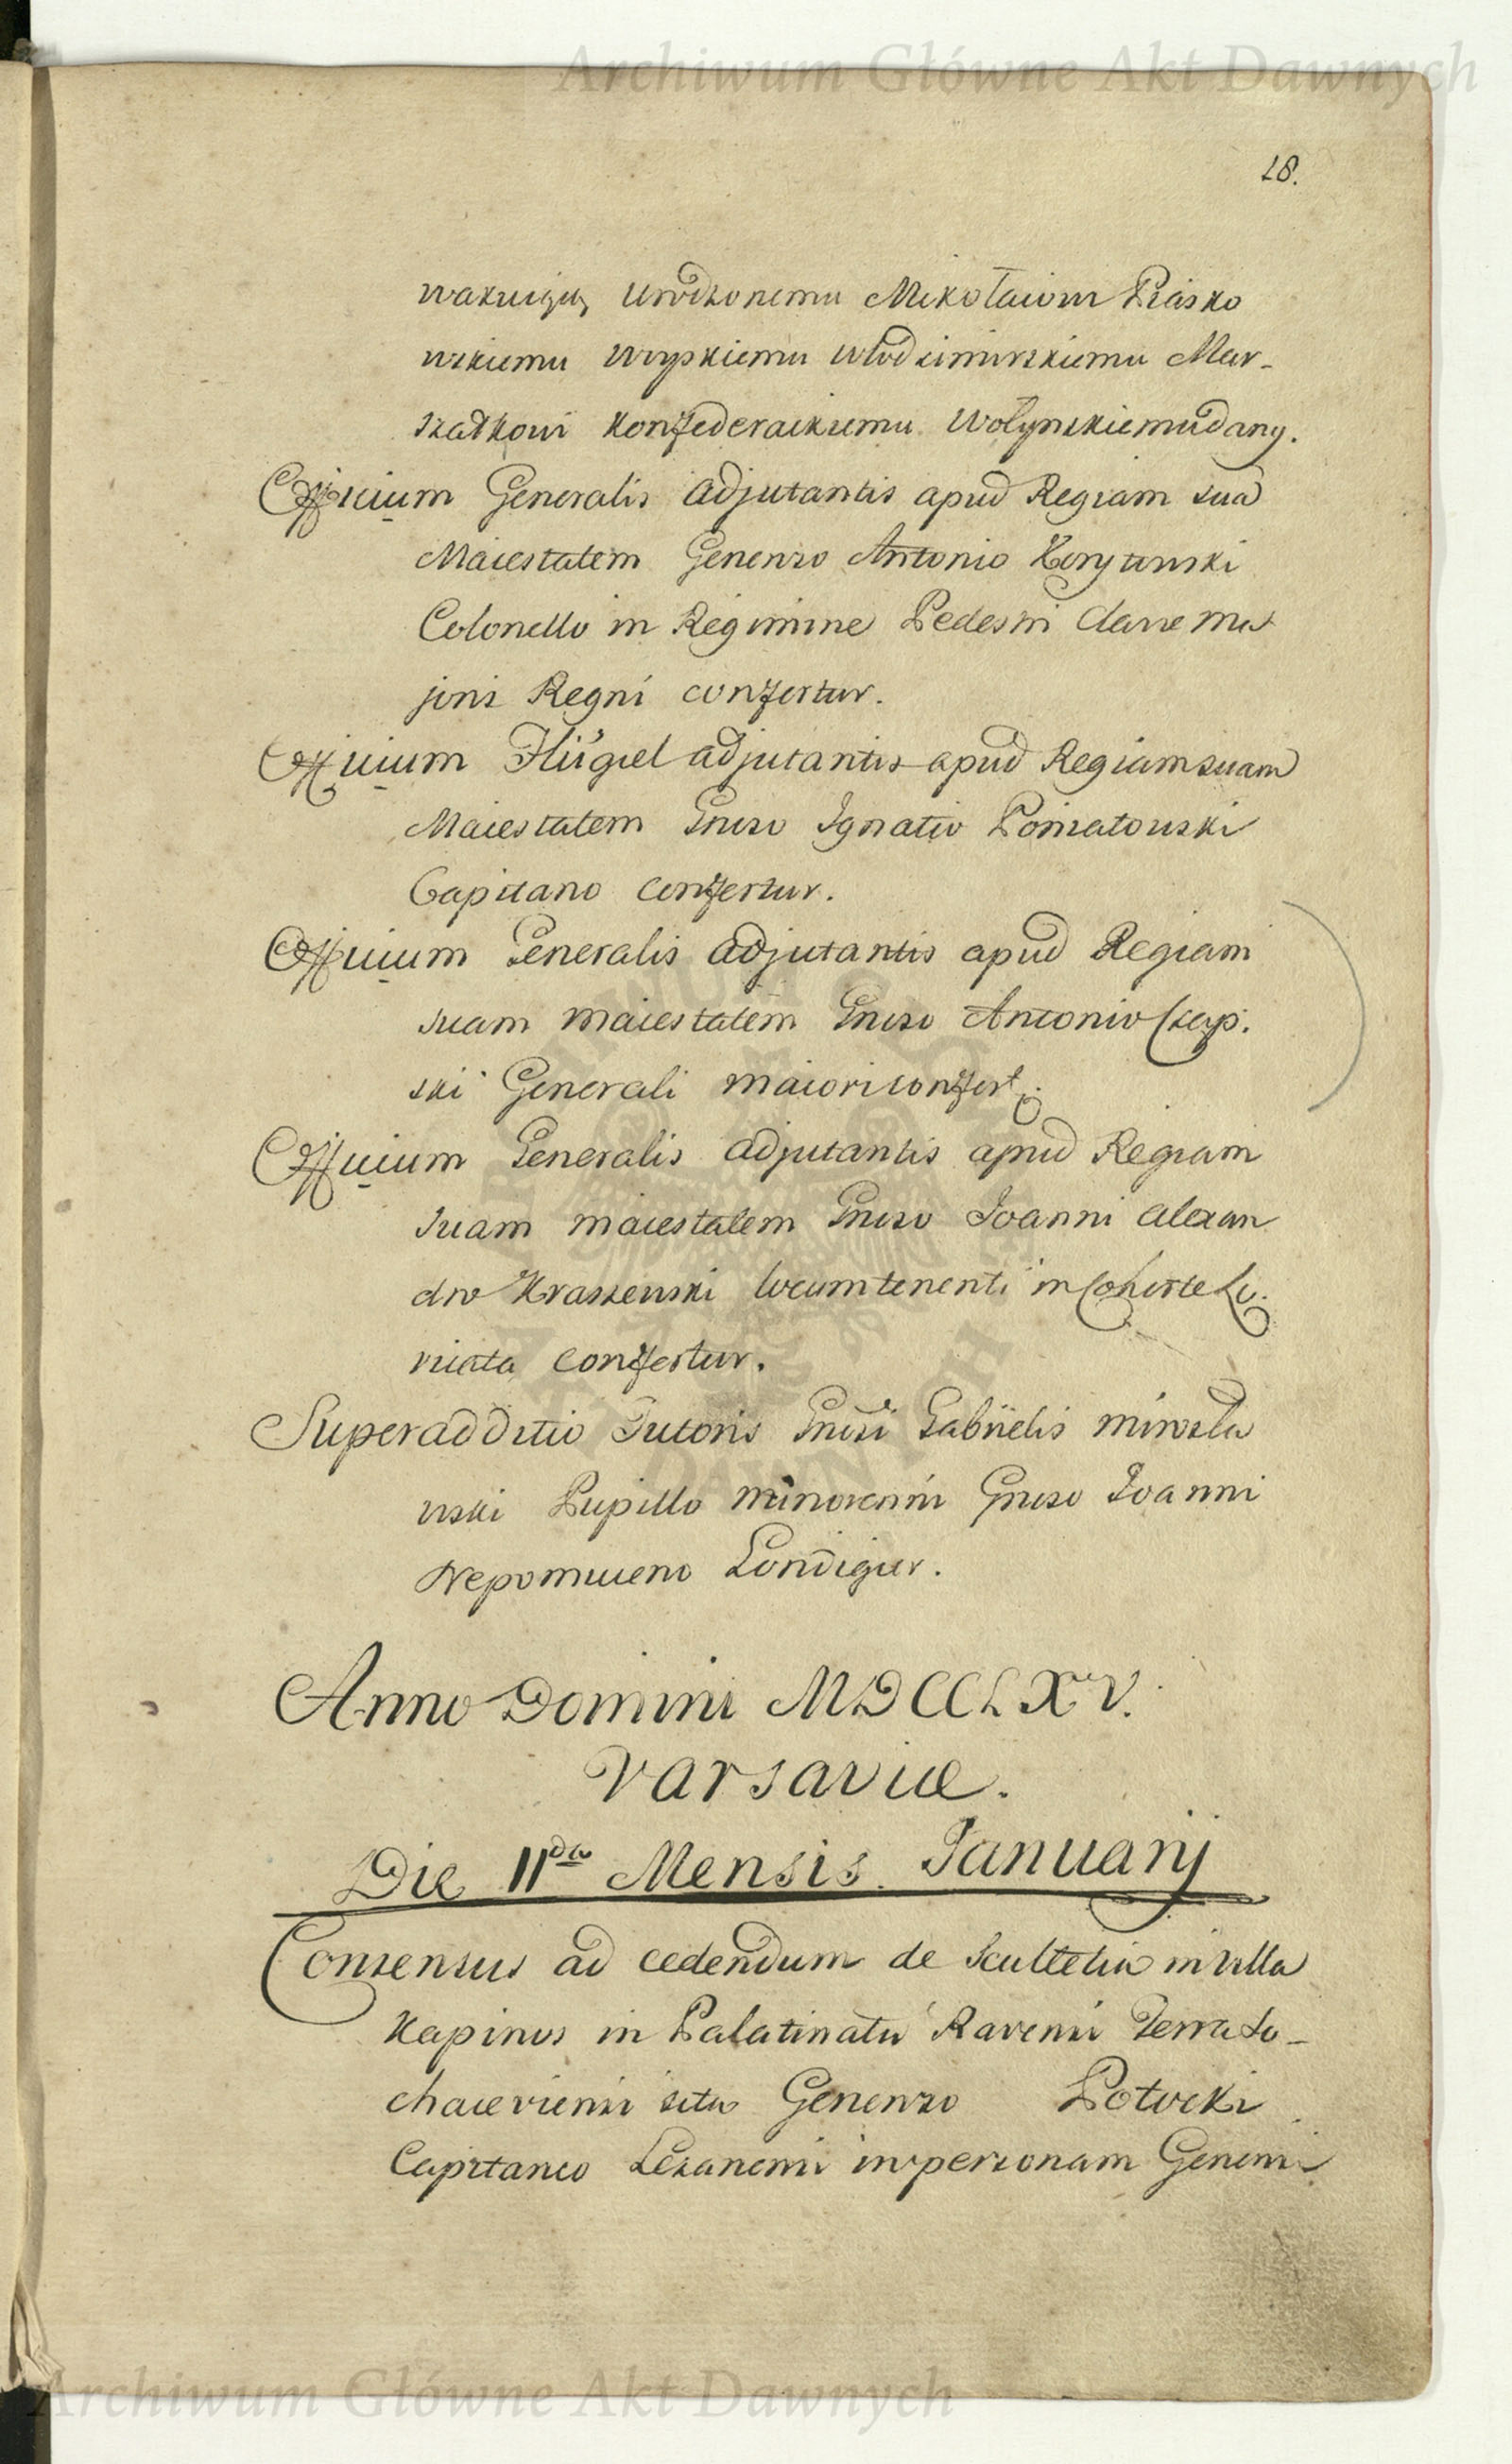 Archiwum Główne Akt Dawnych
18.
wakuiący Urodzonemu Mikołaiowi Piasko
wskiemu Woyskiemu Włodzimirskiemu Mar-
szałkowi Konfederackiemu Wołynskiemu dany.
Officium Generalis Adjutantis apud Regiam sua
Maiestatem Generoso Antonio Korytowski
Colonello in Regimine Pedestri Clavae Ma
joris Regni confertur.
Officium Flügiel adjutantis apud Regiam suam
Maiestatem Gnroso Ignatio Poniatowski
Capitano confertur.
Officium Generalis adjutantis apud Regiam
suam maiestatem Gnroso Antonio
ski Generali maiori confert.
Officium Generalis adjutantis apud Regiam
suam maiestatem Gnroso Joanni Alexan
dro Kraszewski locumtenenti in Cohorte Lo.
ricata confertur.
Superadditio Tutoris Gnrosi Gabrielis Mirosla
wski Pupillo minorenni Gnroso Joanni
Nepomuceno
Anno Domini MDCCLXV.
Varsaviæ.
Die IIda Mensis Januarij
Consensus ad cedendum de Scultetia in Villa
Kapinos in Palatinatu Ravensi Terra So-
chaceviensi sita Generoso Potocki
Capitaneo in personam Generosi
Archiwum Główne Akt Dawnych